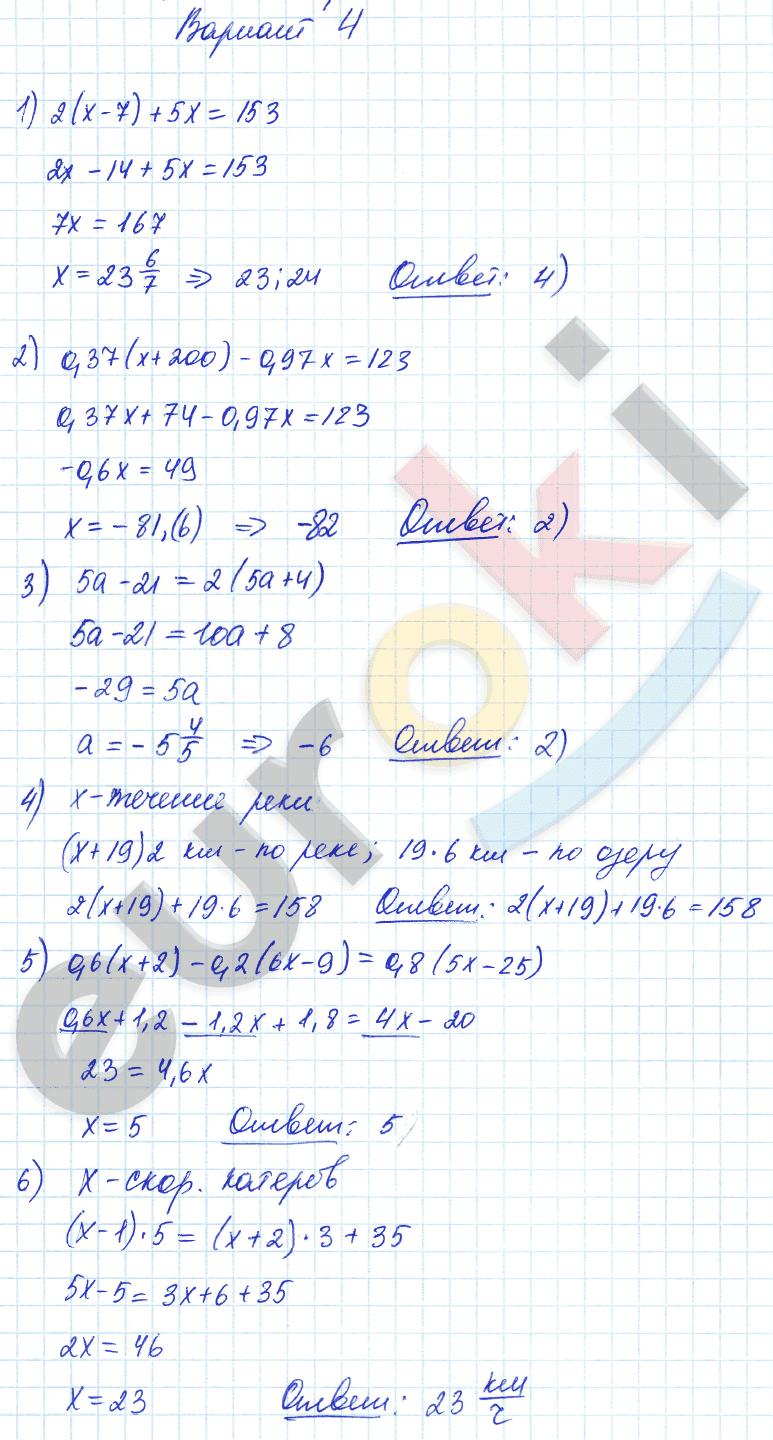 Вариант 4
1) 2(x-7)+5x=153
2x-14+5x=153
7x=167
x=23 6/7 ⇒ 23;24 Ответ: 4)
2) 0,37(x+200)-0,97x=123
0,37x+74-0,97x=123
-0,6x=49
x=-81,(6) ⇒ -82 Ответ: 2)
3) 5a-21=2(5a+4)
5a-21=10a+8
-29=5a
a=-5 4/5 ⇒ -6 Ответ: 2)
4) x-течение реки
(x+19)2 км - по реке; 19·6 км - по озеру
2(x+19)+19·6=158 Ответ: 2(x+19)+19·6=158
5) 0,6(x+2)-0,2(6x-9)=0,8(5x-25)
0,6x+1,2-1,2x+1,8=4x-20
23=4,6x
x=5 Ответ: 5
6) x-скор. катеров
(x-1)·5=(x+2)·3+35
5x-5=3x+6+35
2x=46
x=23 Ответ: 23 км/ч
euroki